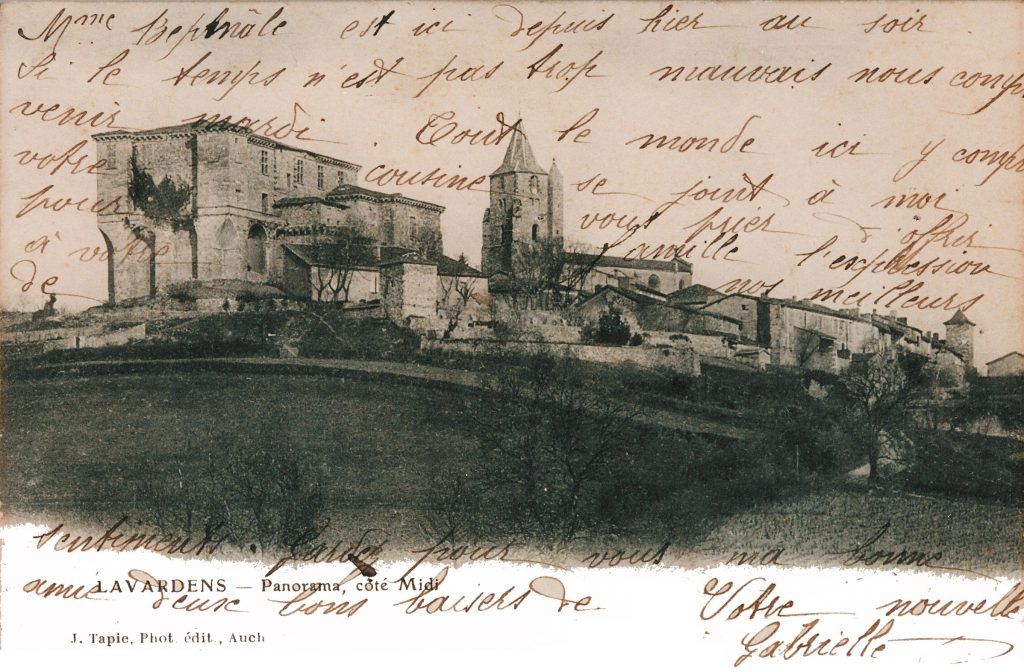 Mme Bephnâle est ici depuis hier au soir
Si le temps n'est pas trop mauvais nous comp
venir mardi Tout le monde ici y comp
votre cousine se joint à moi
pour vous prier d'offrir
à votre famille l'expression
de nos meilleurs
sentiments. Gardez pour vous ma bonne
amie deux bons baisers de Votre nouvelle
Gabrielle
LAVARDENS — Panorama, côté Midi
J. Tapie, Phot. édit., Auch